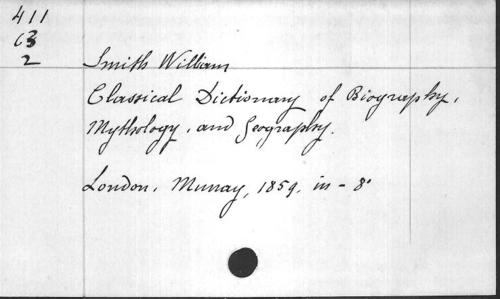 411
C3
2
Smith William
Classical Dictionary of Biography,
Mythology, and Geography.
London, Murray, 1859, in-8°